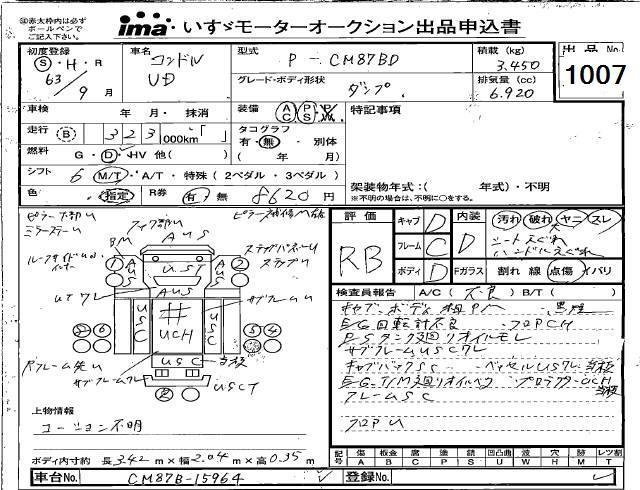 赤太枠内は必ず
ボールペンで
ご記入下さい。
ima いすゞモーターオークション出品申込書
初度登録
S・H・R
63/9月
車名
コンドル
UD
型式
P-CM87BD
グレード・ボディ形状
ダンプ
積載 (kg)
3,450
排気量 (cc)
6,920
出品No.
1007
車検 年 月・抹消
走行 B 323,000km「 」
燃料 G・D・HV 他( )
シフト 6 M/T・A/T・特殊(2ペダル・3ペダル)
色 指定 R券 有・無 8620円
装備 AC PS PW
タコグラフ
有・無・別体
( 年 月)
特記事項
架装物年式:( 年式)・不明
※不明の場合は、不明に○をする。
ピラー下部U
ミラーステーU
AUS
UST
AUS
USC
UCH
USC
USC
USCT
サブフレームU
サブフレームワレ
1 2 3 6 5 4
上物情報
コーション不明
ボディ内寸約 長3.42m×幅2.04m×高0.35m
評価
RB
キャブ D
フレーム C
ボディ D
内装 D
汚れ 破れ ヤニ スレ
シートこげ
ハンドル
Fガラス 割れ 線 点傷 イバリ
検査員報告 A/C( 不良 )B/T( )
キャブ ボディ
E/G回転計不良 フロアCH
P-Sタンク廻りオイルモレ
サブフレームUSCワレ
キャブバックSC ベッセルUSワレ
E/G-T/M廻りオイル プロテクターUCH
フレームUSC
フロアU
記号
傷 板金 腐 塗 錆 凹凸曲 波 穴 跡 レツ割
A B C P S U W H M T
車台No. CM87B-15964
登録No.